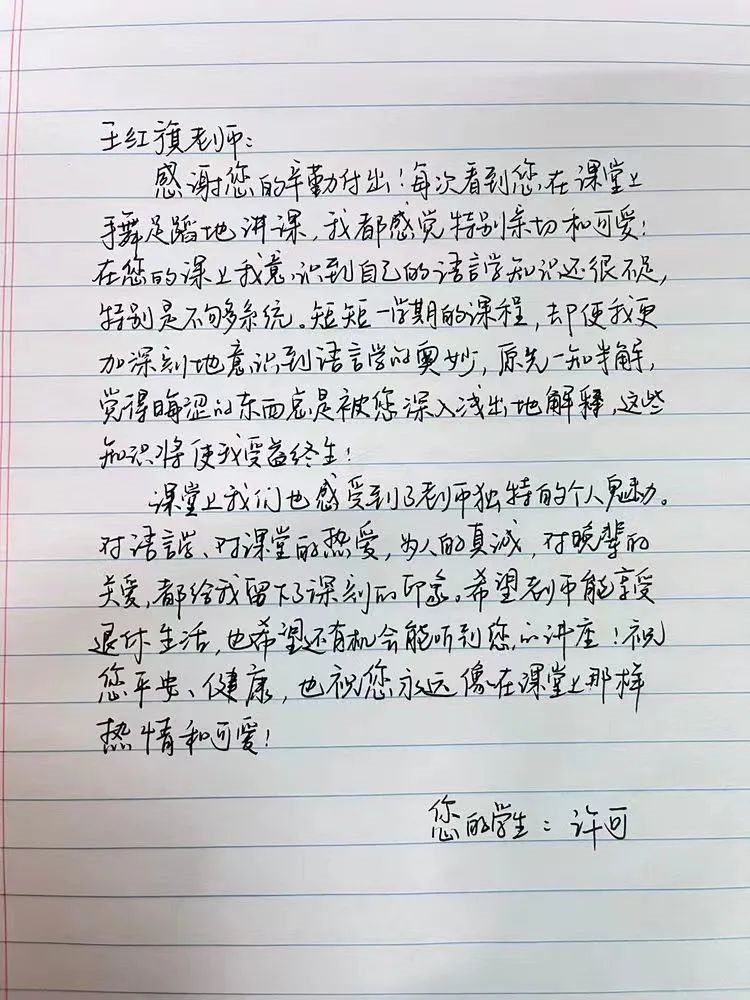 王红旗老师：
感谢您的辛勤付出！每次看到您在课堂上
手舞足蹈地讲课，我都感觉特别亲切和可爱！
在您的课上我意识到自己的语言学知识还很不足，
特别是不够系统。短短一学期的课程，却使我更
加深刻地意识到语言学的奥妙，原先一知半解，
觉得晦涩的东西总是被您深入浅出地解释，这些
知识将使我受益终生！
课堂上我们也感受到了老师独特的个人魅力。
对语言学、对课堂的热爱，为人的真诚，对晚辈的
关爱，都给我留下了深刻的印象。希望老师能享受
退休生活，也希望还有机会能听到您的讲座！祝
您平安、健康，也祝您永远像在课堂上那样
热情和可爱！
您的学生：许可